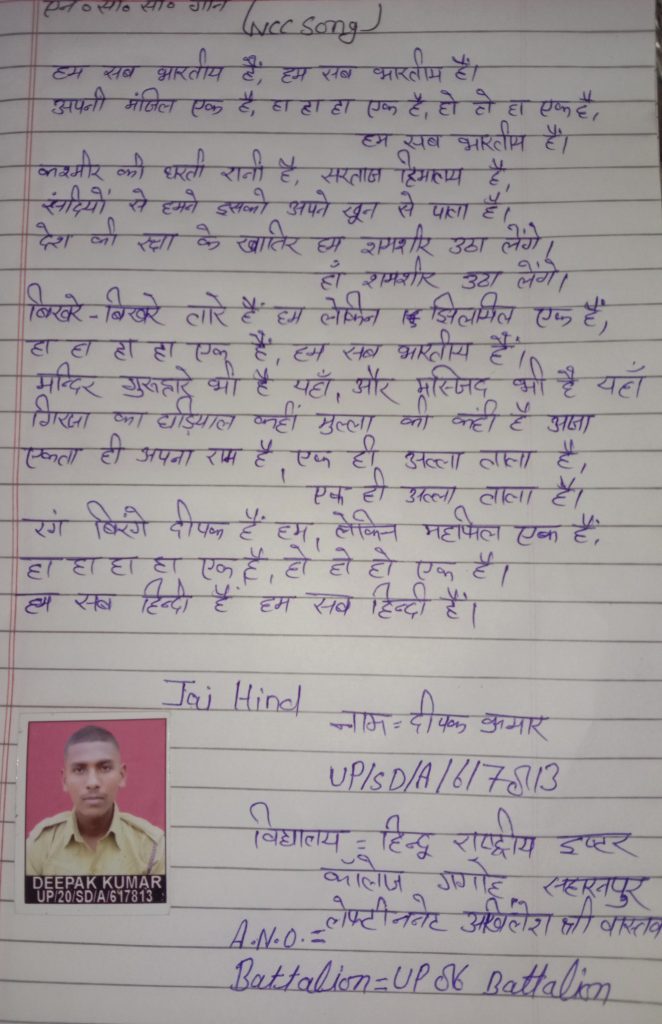 एन॰ सी॰ सी॰ गान
(NCC Song)
हम सब भारतीय हैं, हम सब भारतीय हैं।
अपनी मंजिल एक है, हा हा हा एक है, हो हो हा एक है,
हम सब भारतीय हैं।
कश्मीर की धरती रानी है, सरताज हिमालय है,
सदियों से हमने इसको अपने खून से पाला है।
देश की रक्षा के खातिर हम शमशीर उठा लेंगे।
हाँ शमशीर उठा लेंगे।
बिखरे-बिखरे तारे हैं हम लेकिन झिलमिल एक हैं,
हा हा हा हा एक हैं, हम सब भारतीय हैं।
मन्दिर गुरूद्वारे भी है यहाँ, और मस्जिद भी है यहाँ
गिरजा का घड़ियाल कहीं मुल्ला की कंही है अजा
एकता ही अपना राम है, एक ही अल्ला ताला है,
एक ही अल्ला ताला है।
रंग बिरंगे दीपक हैं हम, लेकिन महफिल एक हैं,
हा हा हा हा एक है, हो हो हो एक है।
हम सब हिन्दी हैं हम सब हिन्दी हैं।
Jai Hind
नाम = दीपक कुमार
UP/SD/A/617813
विद्यालय = हिन्दू राष्ट्रीय इण्टर
कॉलेज गंगोह सहारनपुर
A.N.O. = लेफ्टीननेट अखिलेश श्री वास्तव
Battalion = UP 86 Battalion
DEEPAK KUMAR
UP/20/SD/A/617813